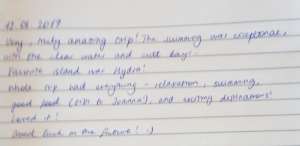 12.08.2019
Very, truly amazing trip! The swimming was exceptional,
with the clear water and salt bays.
Favourite island was Hydra!
Whole trip had everything - relaxation, swimming,
good food (thx to Joanna), and exciting destinations!
Loved it!
Good luck in the future! :)